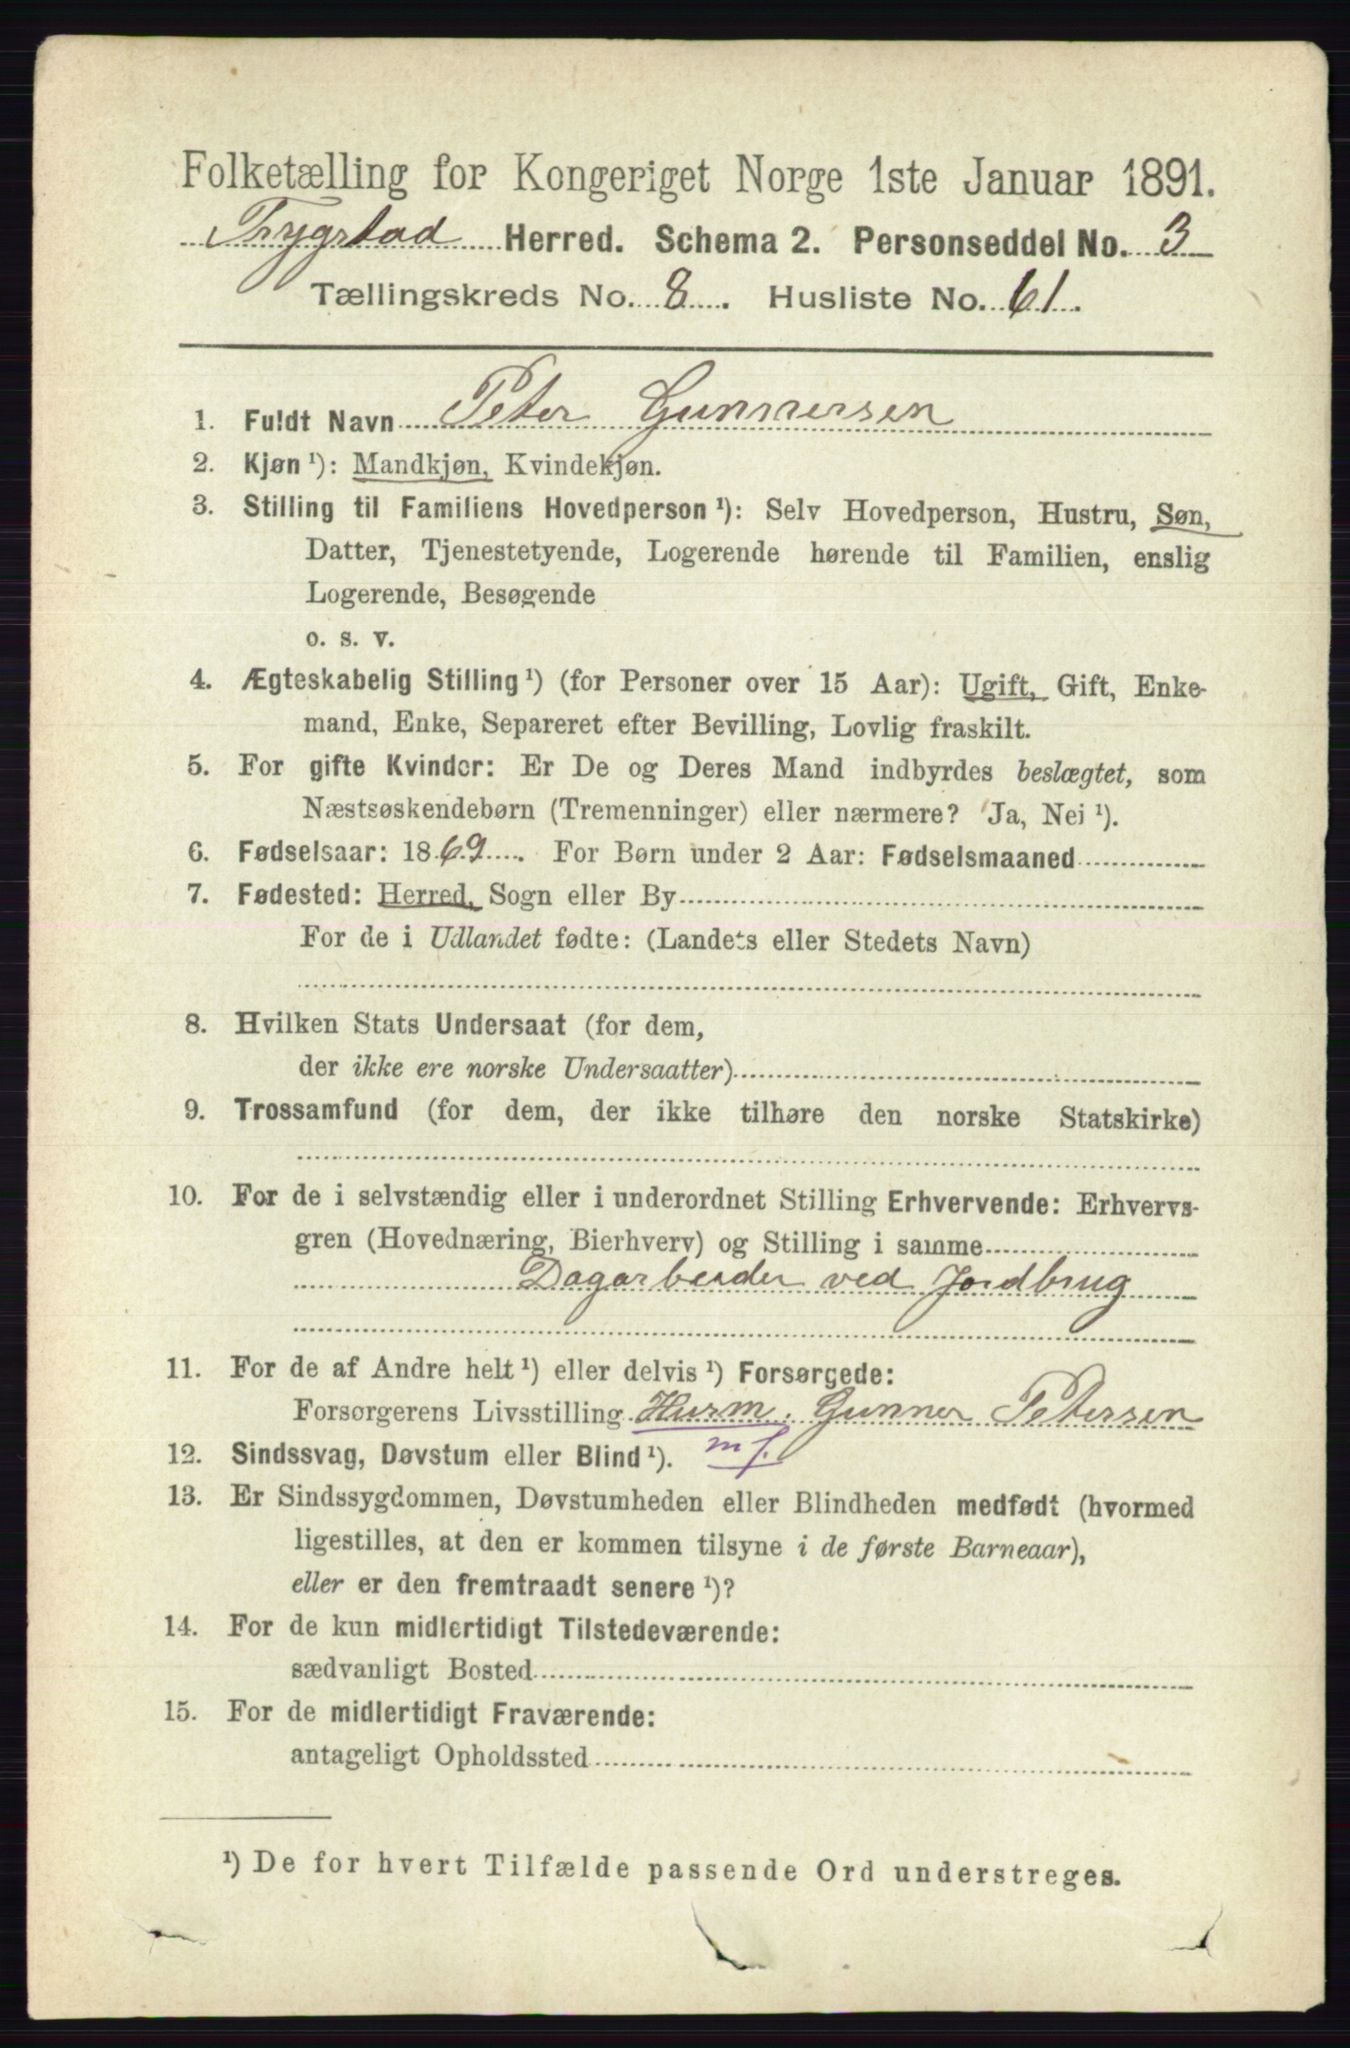 Folketælling for Kongeriget Norge 1ste Januar 1891.
Trygstad Herred. Schema 2. Personseddel No. 3
Tællingskreds No. 8. Husliste No. 61.
1. Fuldt Navn Peter Gunnersen
2. Kjøn ¹): Mandkjøn, Kvindekjøn.
3. Stilling til Familiens Hovedperson ¹): Selv Hovedperson, Hustru, Søn,
Datter, Tjenestetyende, Logerende hørende til Familien, enslig
Logerende, Besøgende
o. s. v.
4. Ægteskabelig Stilling ¹) (for Personer over 15 Aar): Ugift, Gift, Enke-
mand, Enke, Separeret efter Bevilling, Lovlig fraskilt.
5. For gifte Kvinder: Er De og Deres Mand indbyrdes beslægtet, som
Næstsøskendebørn (Tremenninger) eller nærmere? Ja, Nei ¹).
6. Fødselsaar: 1869. For Børn under 2 Aar: Fødselsmaaned
7. Fødested: Herred, Sogn eller By
For de i Udlandet fødte: (Landets eller Stedets Navn)
8. Hvilken Stats Undersaat (for dem,
der ikke ere norske Undersaatter)
9. Trossamfund (for dem, der ikke tilhøre den norske Statskirke)
10. For de i selvstændig eller i underordnet Stilling Erhvervende: Erhvervs-
gren (Hovednæring, Bierhverv) og Stilling i samme
Dagarbeider ved Jordbrug
11. For de af Andre helt ¹) eller delvis ¹) Forsørgede:
Forsørgerens Livsstilling Husm. Gunner Petersen
12. Sindssvag, Døvstum eller Blind ¹). mf.
13. Er Sindssygdommen, Døvstumheden eller Blindheden medfødt (hvormed
ligestilles, at den er kommen tilsyne i de første Barneaar),
eller er den fremtraadt senere ¹)?
14. For de kun midlertidigt Tilstedeværende:
sædvanligt Bosted
15. For de midlertidigt Fraværende:
antageligt Opholdssted
¹) De for hvert Tilfælde passende Ord understreges.